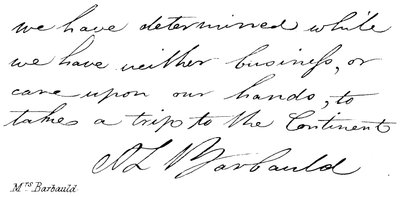 we have determined while
we have neither business, or
care upon our hands, to
take a trip to the Continent
A L Barbauld
Mrs Barbauld